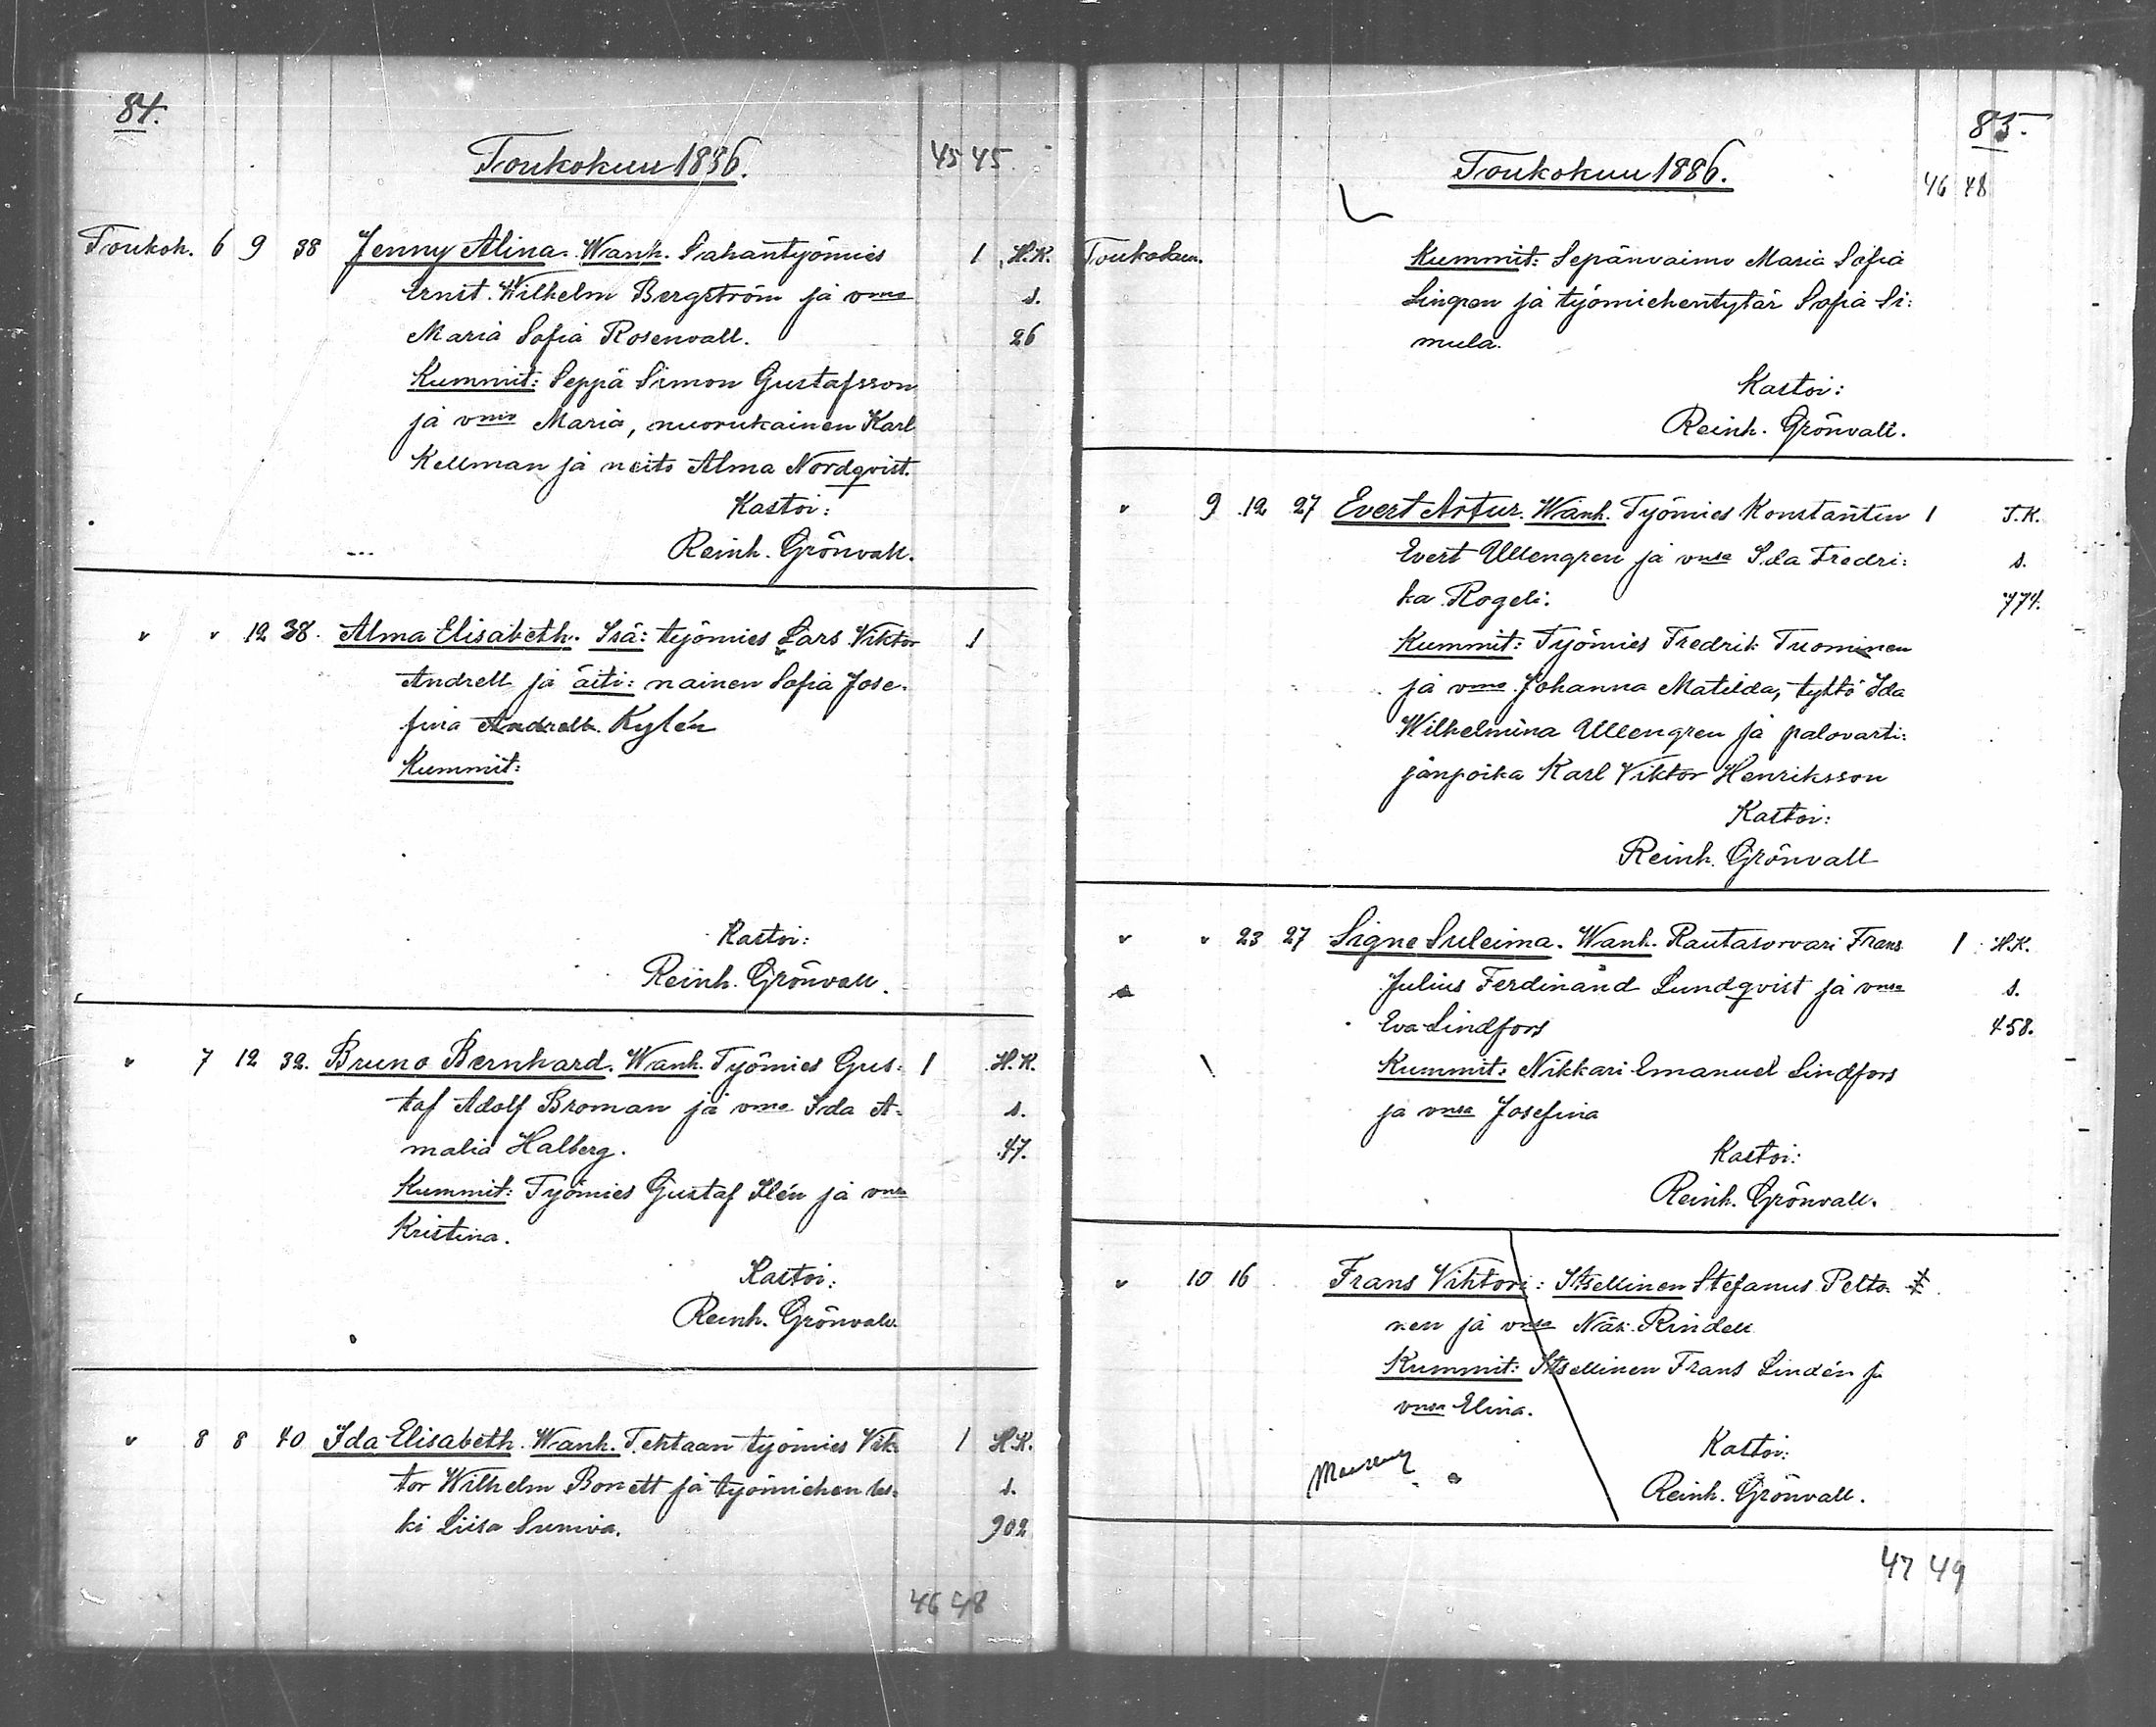 84.
Toukokuu 1886. 45 45
Toukok. 6 9 38 Jenny Alina. Wanh. Sahantyömies 1 H.K.
Ernst. Wilhelm Bergström ja vmo s.
Maria Sofia Rosenvall. 26
Kummit: Seppä Simon Gustafsson
ja vmo Maria, nuorukainen Karl
Kellman ja neits Alma Nordqvist.
Kastoi:
Reinh. Grönvall.
" " 12 38. Alma Elisabeth. Isä: työmies Lars Viktor 1
Andrell ja äiti: nainen Sofia Jose-
fina Andrell. Kylén
Kummit:
Kastoi:
Reinh. Grönvall.
" 7 12 32. Bruno Bernhard. Wanh. Työmies Gus- 1 H.K.
taf Adolf Broman ja vmo Ida A- s.
malia Halberg. 47.
Kummit: Työmies Gustaf Ilén ja vnsa
Kristina.
Kastoi:
Reinh. Grönvall.
" 8 8 40 Ida Elisabeth. Wanh. Tehtaan työmies Vik- 1 H.K.
tor Wilhelm Bonett ja työmiehen les- s.
ki Liisa 902
46 48
85.
Toukokuu 1886. 46 48
Toukokuu. Kummit: Sepänvaimo Maria Sofia
Lingren ja työmiehentytär Sofia Si-
mula.
Kastoi:
Reinh. Grönvall.
" 9 12 27 Evert Artur. Wanh. Työmies Konstantin 1 T.K.
Evert Ullengren ja vnsa Ida Fredri- s.
ka Rogeli. 774.
Kummit: Työmies Fredrik Tuominen
ja vmo Johanna Matilda, tyttö Ida
Wilhelmina Ullengren ja palovarti-
janpoika Karl Viktor Henriksson
Kastoi:
Reinh. Grönvall
" " 23 27 Signe Suleima. Wanh. Rautasorvari Frans 1 H.K.
Julius Ferdinand Lundqvist ja vnsa s.
Eva Lindfors 458.
Kummit: Nikkari Emanuel Lindfors
ja vnsa Josefina
Kastoi:
Reinh. Grönvall.
" 10 16 Frans Vihtori: Itsellinen Stefanus Pelto-
nen ja vnsa Rindell
Kummit: Itsellinen Frans Lindén ja
vnsa Elina.
Kastoi:
Reinh. Grönvall.
47 49